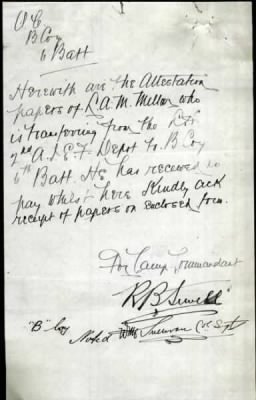 O C
B Coy
6 Batt
Herewith are the Attestation
papers of L A. M. Millar who
is transfering from the
2nd A.I.E.F Depot to B Coy
6th Batt. He has received no
pay whilst here Kindly ack
receipt of papers on enclosed form.
For Camp Commandant
R B Sewell
"B" Coy Noted